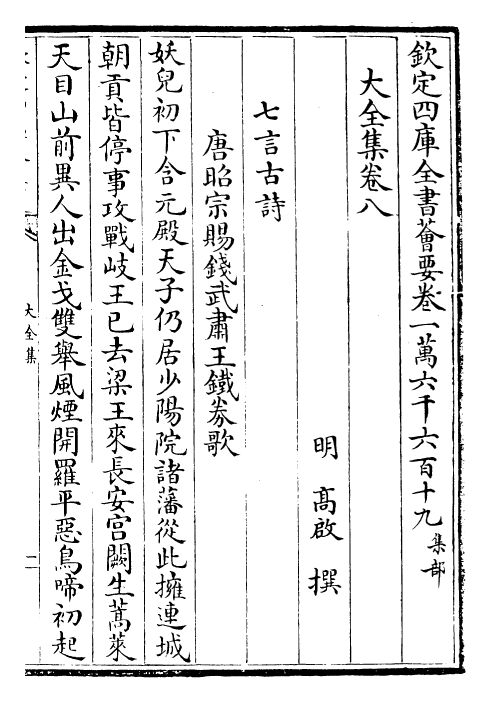 欽定四庫全書薈要卷一萬六千六百十九集部
大全集卷八
明 高啟 撰
七言古詩
唐昭宗賜錢武肅王鐵券歌
妖兒初下含元殿天子仍居少陽院諸藩從此擁連城
朝貢皆停事攻戰岐王已去梁王來長安宮闕生蒿萊
天目山前異人出金戈雙舉風煙開羅平惡鳥啼初起
大全集